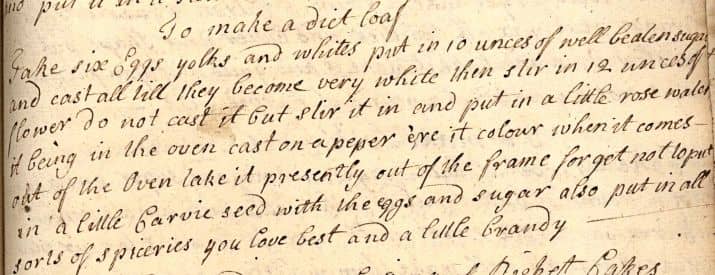 put it in a
To make a diet loaf
Take six Eggs yolks and whites put in 10 unces of well bealen sugar
and cast all till they become very white then stir in 12 unces of
flower do not cast it but stir it in and put in a little rose water
it being in the oven cast on a peper ere it colour when it comes
out of the Oven take it presently out of the frame forget not to put
in a little Carvie seed with the eggs and sugar also put in all
sorts of spiceries you love best and a little brandy
Cakes